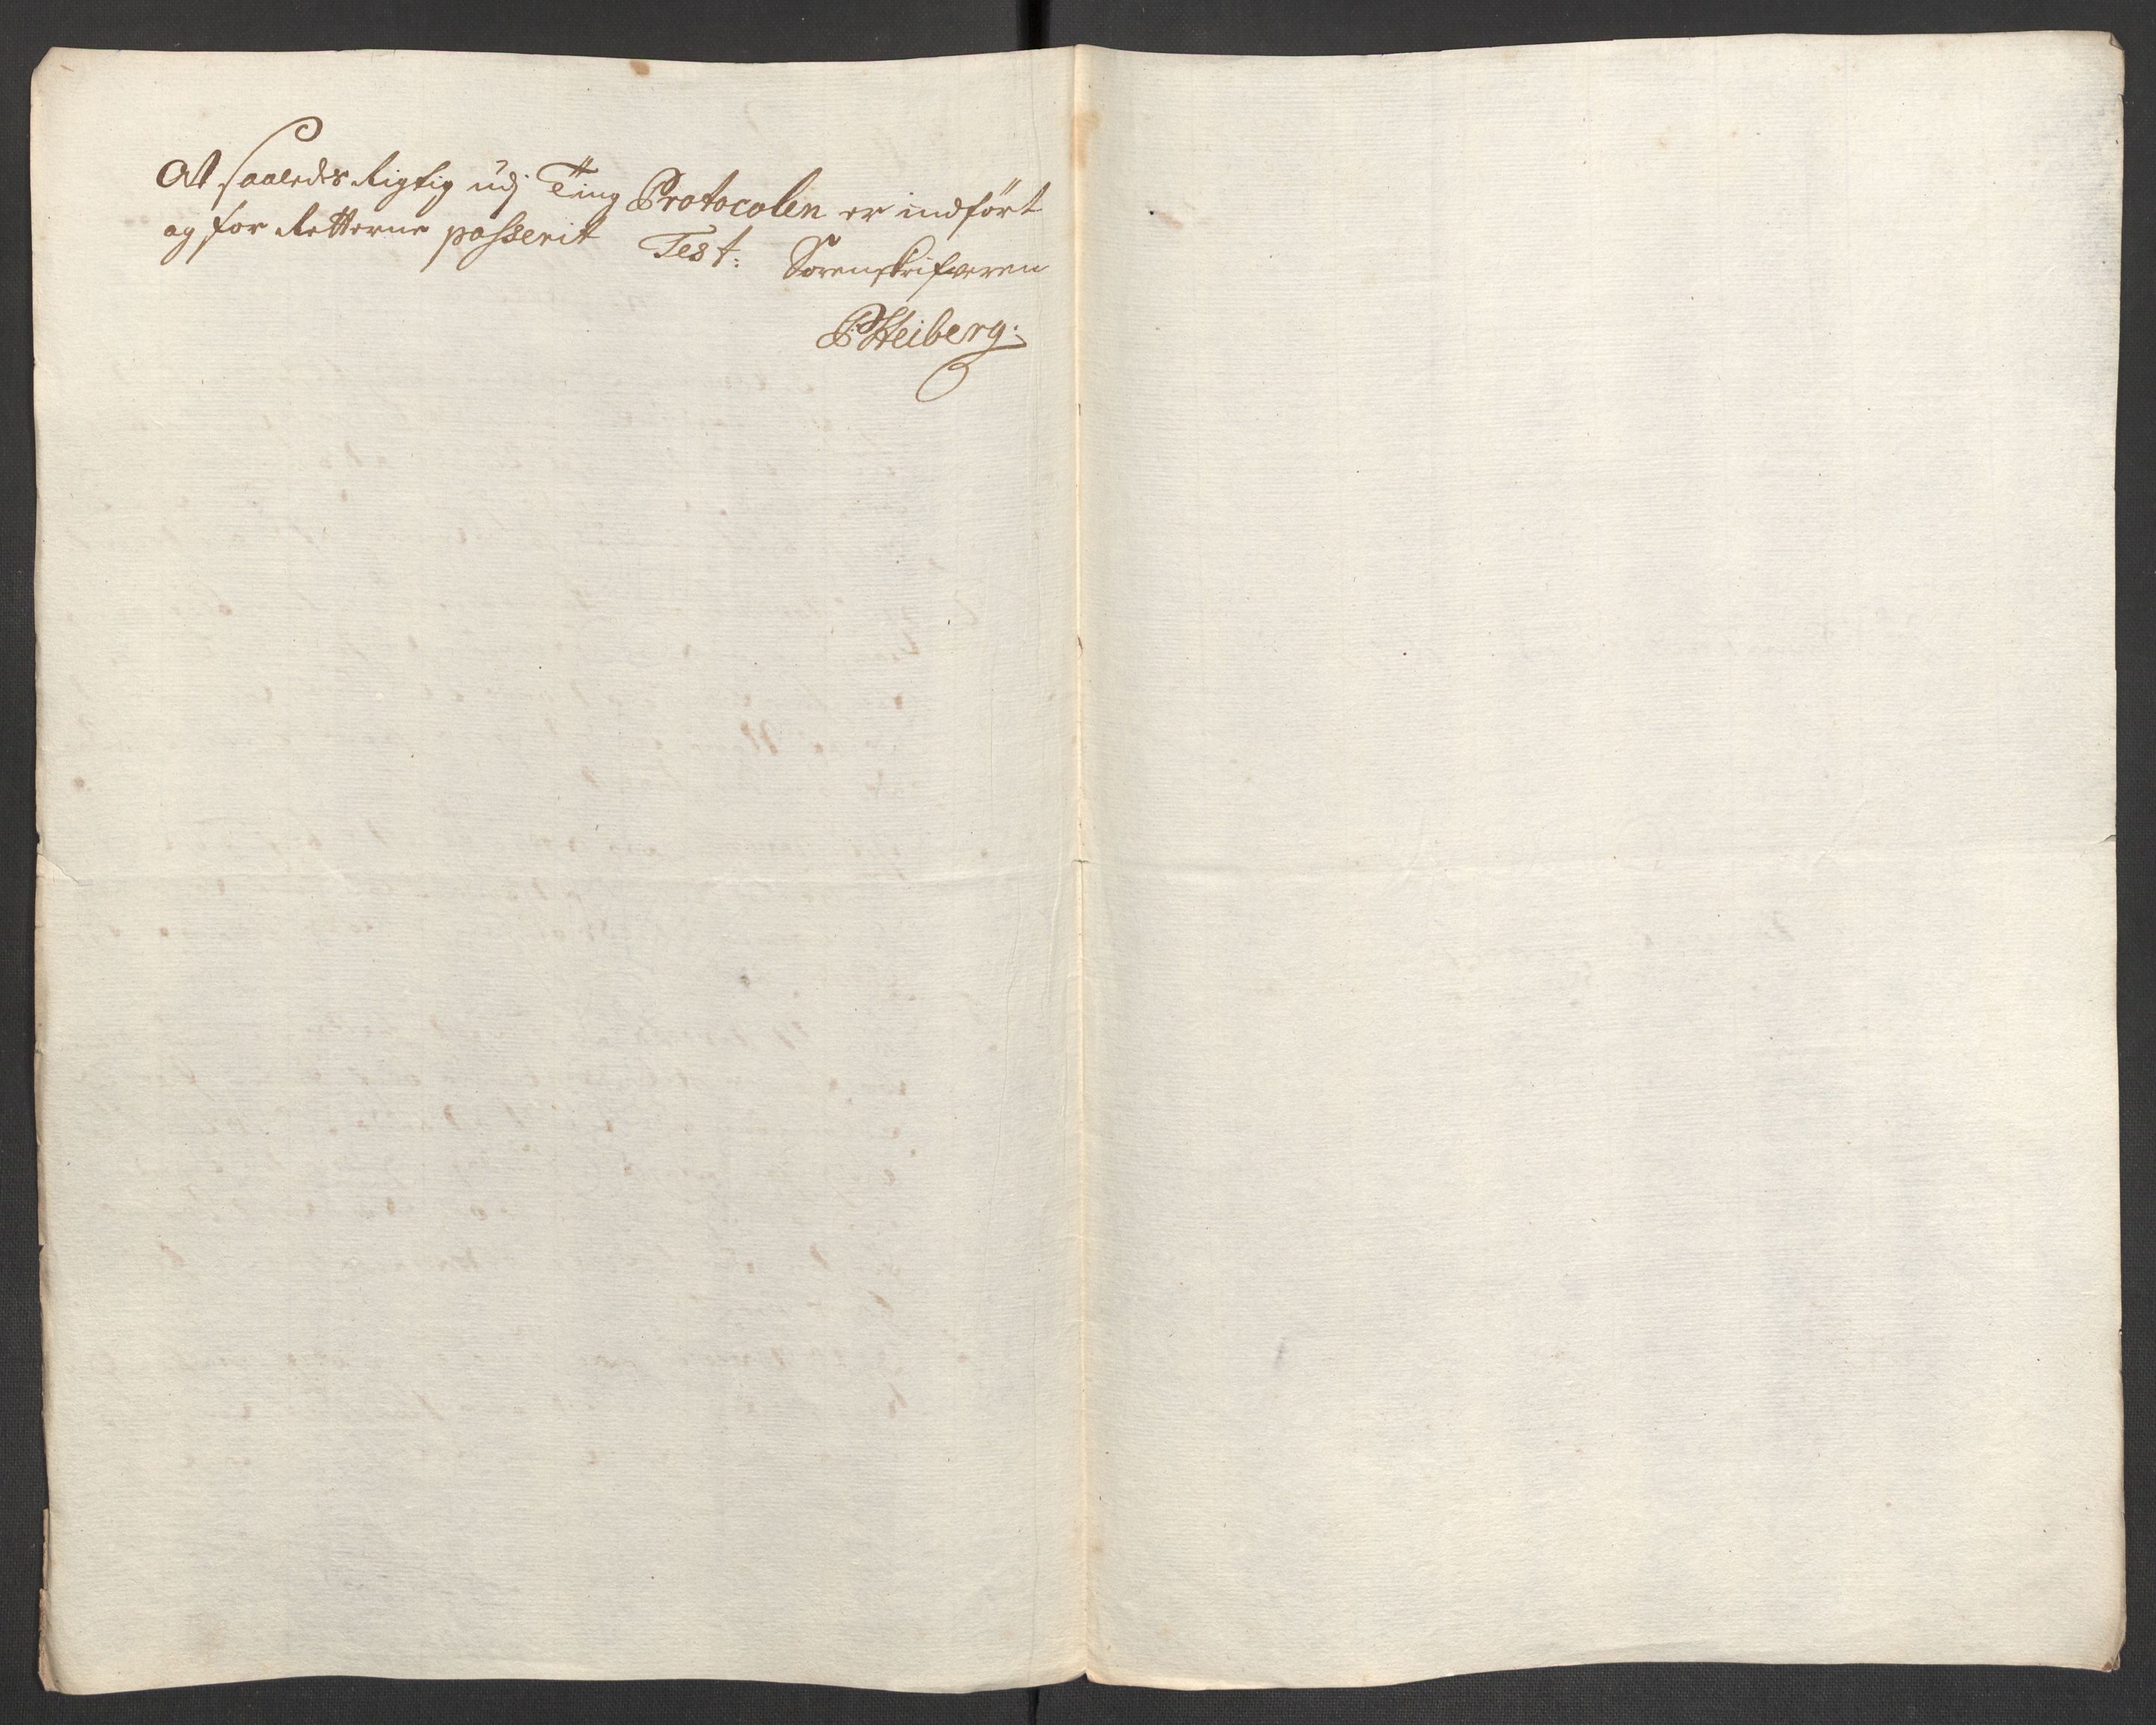 At saaledes Rigtig udj Ting Protocolen er indført
og for Retterne passerit Test: Sorenskrifveren
PHeiberg.